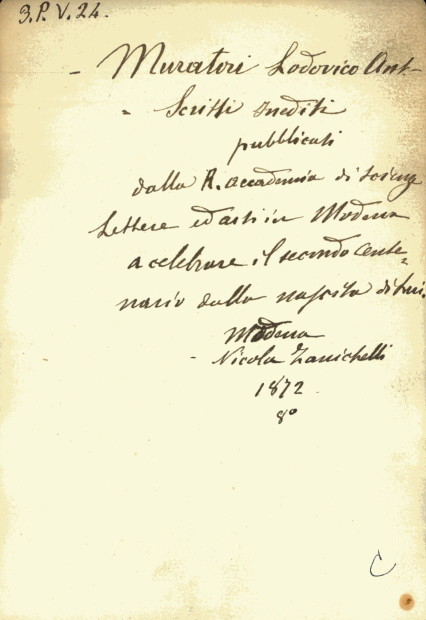 3. P. V. 24.
- Muratori Lodovico Ant-
- Scritti inediti
pubblicati
dalla R. Accademia di Scienze
Lettere ed arti in Modena
a celebrare il secondo cente=
nario dalla nascita di Lui.
Modena
- Nicola Zanichelli
1872
8°
C